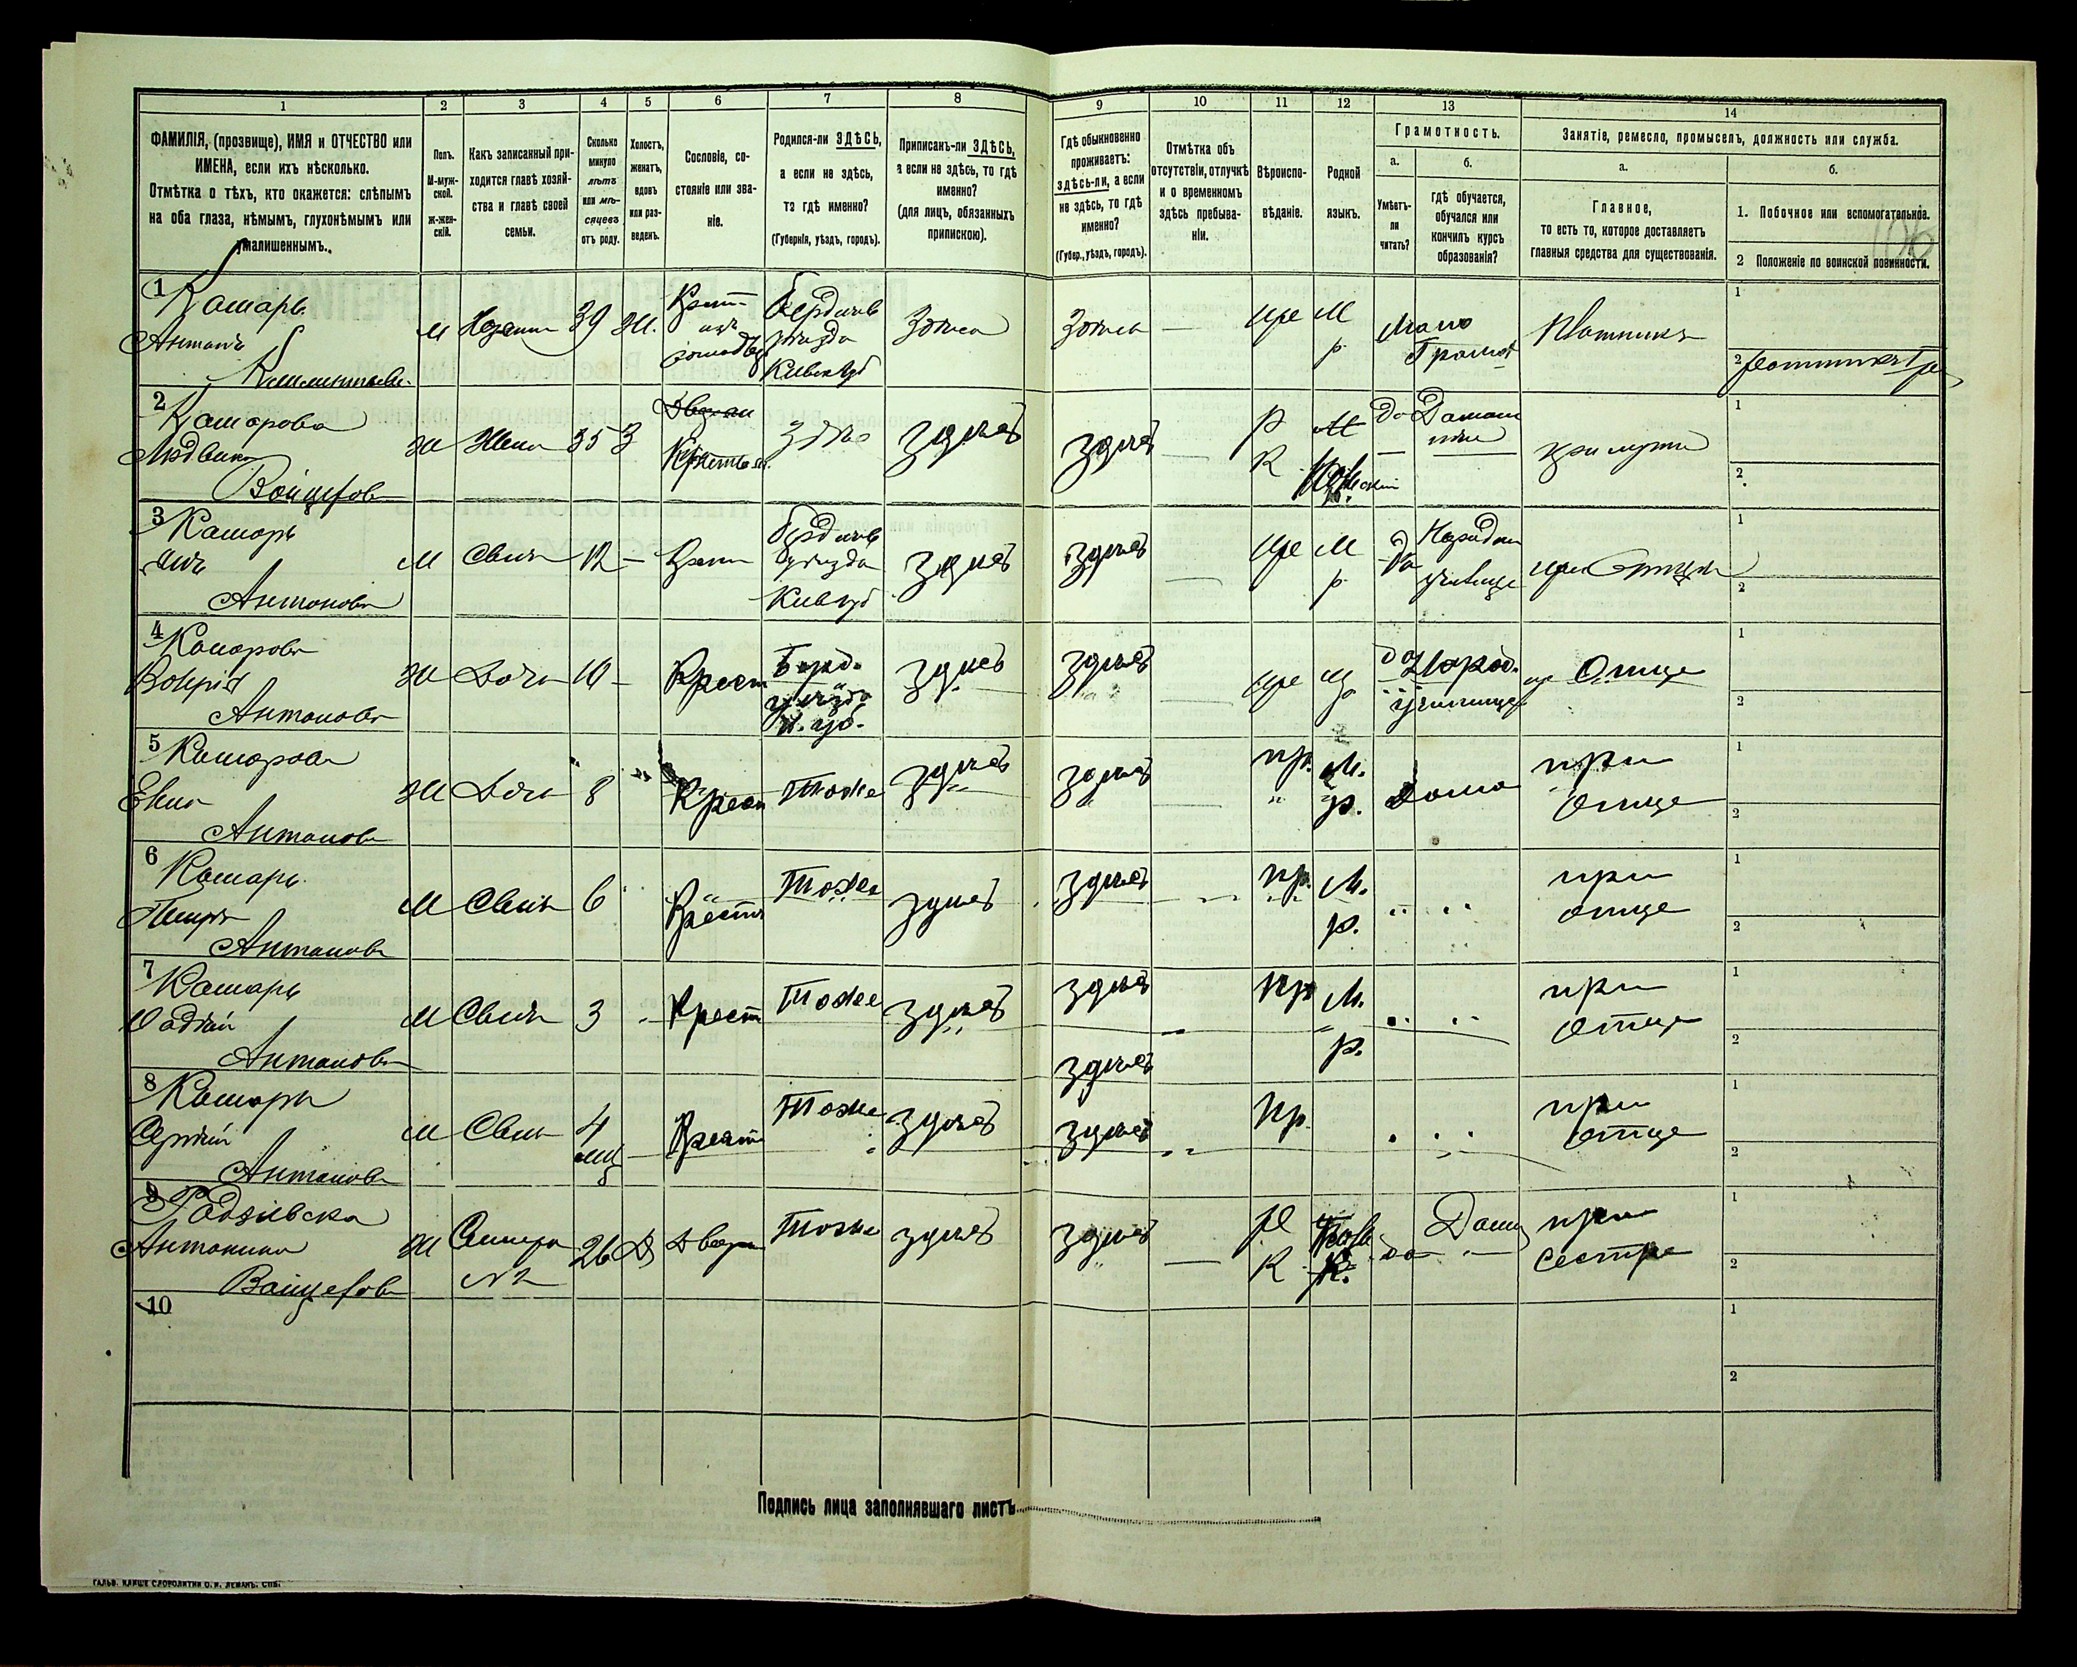 1
2
3
4
5
6
7
8
9
10
11
12
13
14
ФАМИЛІЯ, (прозвище), ИМЯ и ОТЧЕСТВО или
ИМЕНА, если ихъ нѣсколько.
Отмѣтка о тѣхъ, кто окажется: слѣпымъ
на оба глаза, нѣмымъ, глухонѣмымъ или
умалишеннымъ.
Полъ.
М-муж-
ской.
ж-жен-
скій.
Какъ записанный при-
ходится главѣ хозяй-
ства и главѣ своей
семьи.
Сколько
минуло
лѣтъ
или мѣ-
сяцевъ
отъ роду.
Холостъ,
женатъ,
вдовъ
или раз-
веденъ.
Сословіе, со-
стояніе или зва-
ніе.
Родился-ли ЗДѢСЬ,
а если не здѣсь,
то гдѣ именно?
(Губернія, уѣздъ, городъ).
Приписанъ-ли ЗДѢСЬ,
а если не здѣсь, то гдѣ
именно?
(для лицъ, обязанныхъ
припискою).
Гдѣ обыкновенно
проживаетъ:
здѣсь-ли, а если
не здѣсь, то гдѣ
именно?
(Губер., уѣздъ, городъ).
Отмѣтка объ
отсутствіи, отлучкѣ
и о временномъ
здѣсь пребыва-
ніи.
Вѣроиспо-
вѣданіе.
Родной
языкъ.
Грамотность.
а.
Умѣетъ-
ли
читать?
б.
гдѣ обучается,
обучался или
кончилъ курсъ
образованія?
Занятіе, ремесло, промыселъ, должность или служба.
а.
Главное,
то есть то, которое доставляетъ
главныя средства для существованія.
б.
1. Побочное или вспомогательное.
2 Положеніе по воинской повинности.
106
1
Комаръ
Антонъ
Климентьевъ
М
39
Ж.
Крест
Бердичев
уѣзда
Киев губ
пр
М
р.
Мало
Грамот
Плотникъ
1
2
2
Комарова
Людвика
Войцехова
Ж
Жена
35
З
здѣсь
здѣсь
здѣсь
Р
К
да
Домаш
при мужѣ
1
2
3
Комаръ
Антоновъ
М
Сынъ
12
Крест
Бердичев
уѣзда
Киев губ
здѣсь
здѣсь
пр
М
р.
да
Народном
училище
при Отцѣ
1
2
4
Комарова
Антонова
Ж
Дочь
10
Крест
Берд.
уѣзда
К. губ.
здѣсь
здѣсь
пр
да
Народ.
училище
пр Отце
1
2
5
Комарова
Антонова
Ж
Дочь
8
Крест
Тоже
здѣсь
здѣсь
пр.
М.
р.
дома
при
отце
1
2
6
Комаръ
Петръ
Антоновъ
М
Сынъ
6
Крест
Тоже
здѣсь
здѣсь
пр.
М.
р.
при
отце
1
2
7
Комаръ
Антоновъ
М
Сынъ
3
Крест
Тоже
здѣсь
здѣсь
пр
М.
р.
при
отце
1
2
8
Комаръ
Сергій
Антоновъ
М
Сынъ
4
мц
Крест
Тоже
здѣсь
здѣсь
здѣсь
пр.
при
отце
1
2
9
Антонина
Войцехова
Ж
Сестра
№ 2
26
Д
Дворян
Тоже
здѣсь
здѣсь
Р
К
да
Дома
при
сестре
1
2
10
1
2
Подпись лица заполнявшаго листъ
ГАЛЬВ. КЛИШЕ СЛОВОЛИТНИ О. И. ЛЕМАНЪ. СПБ.